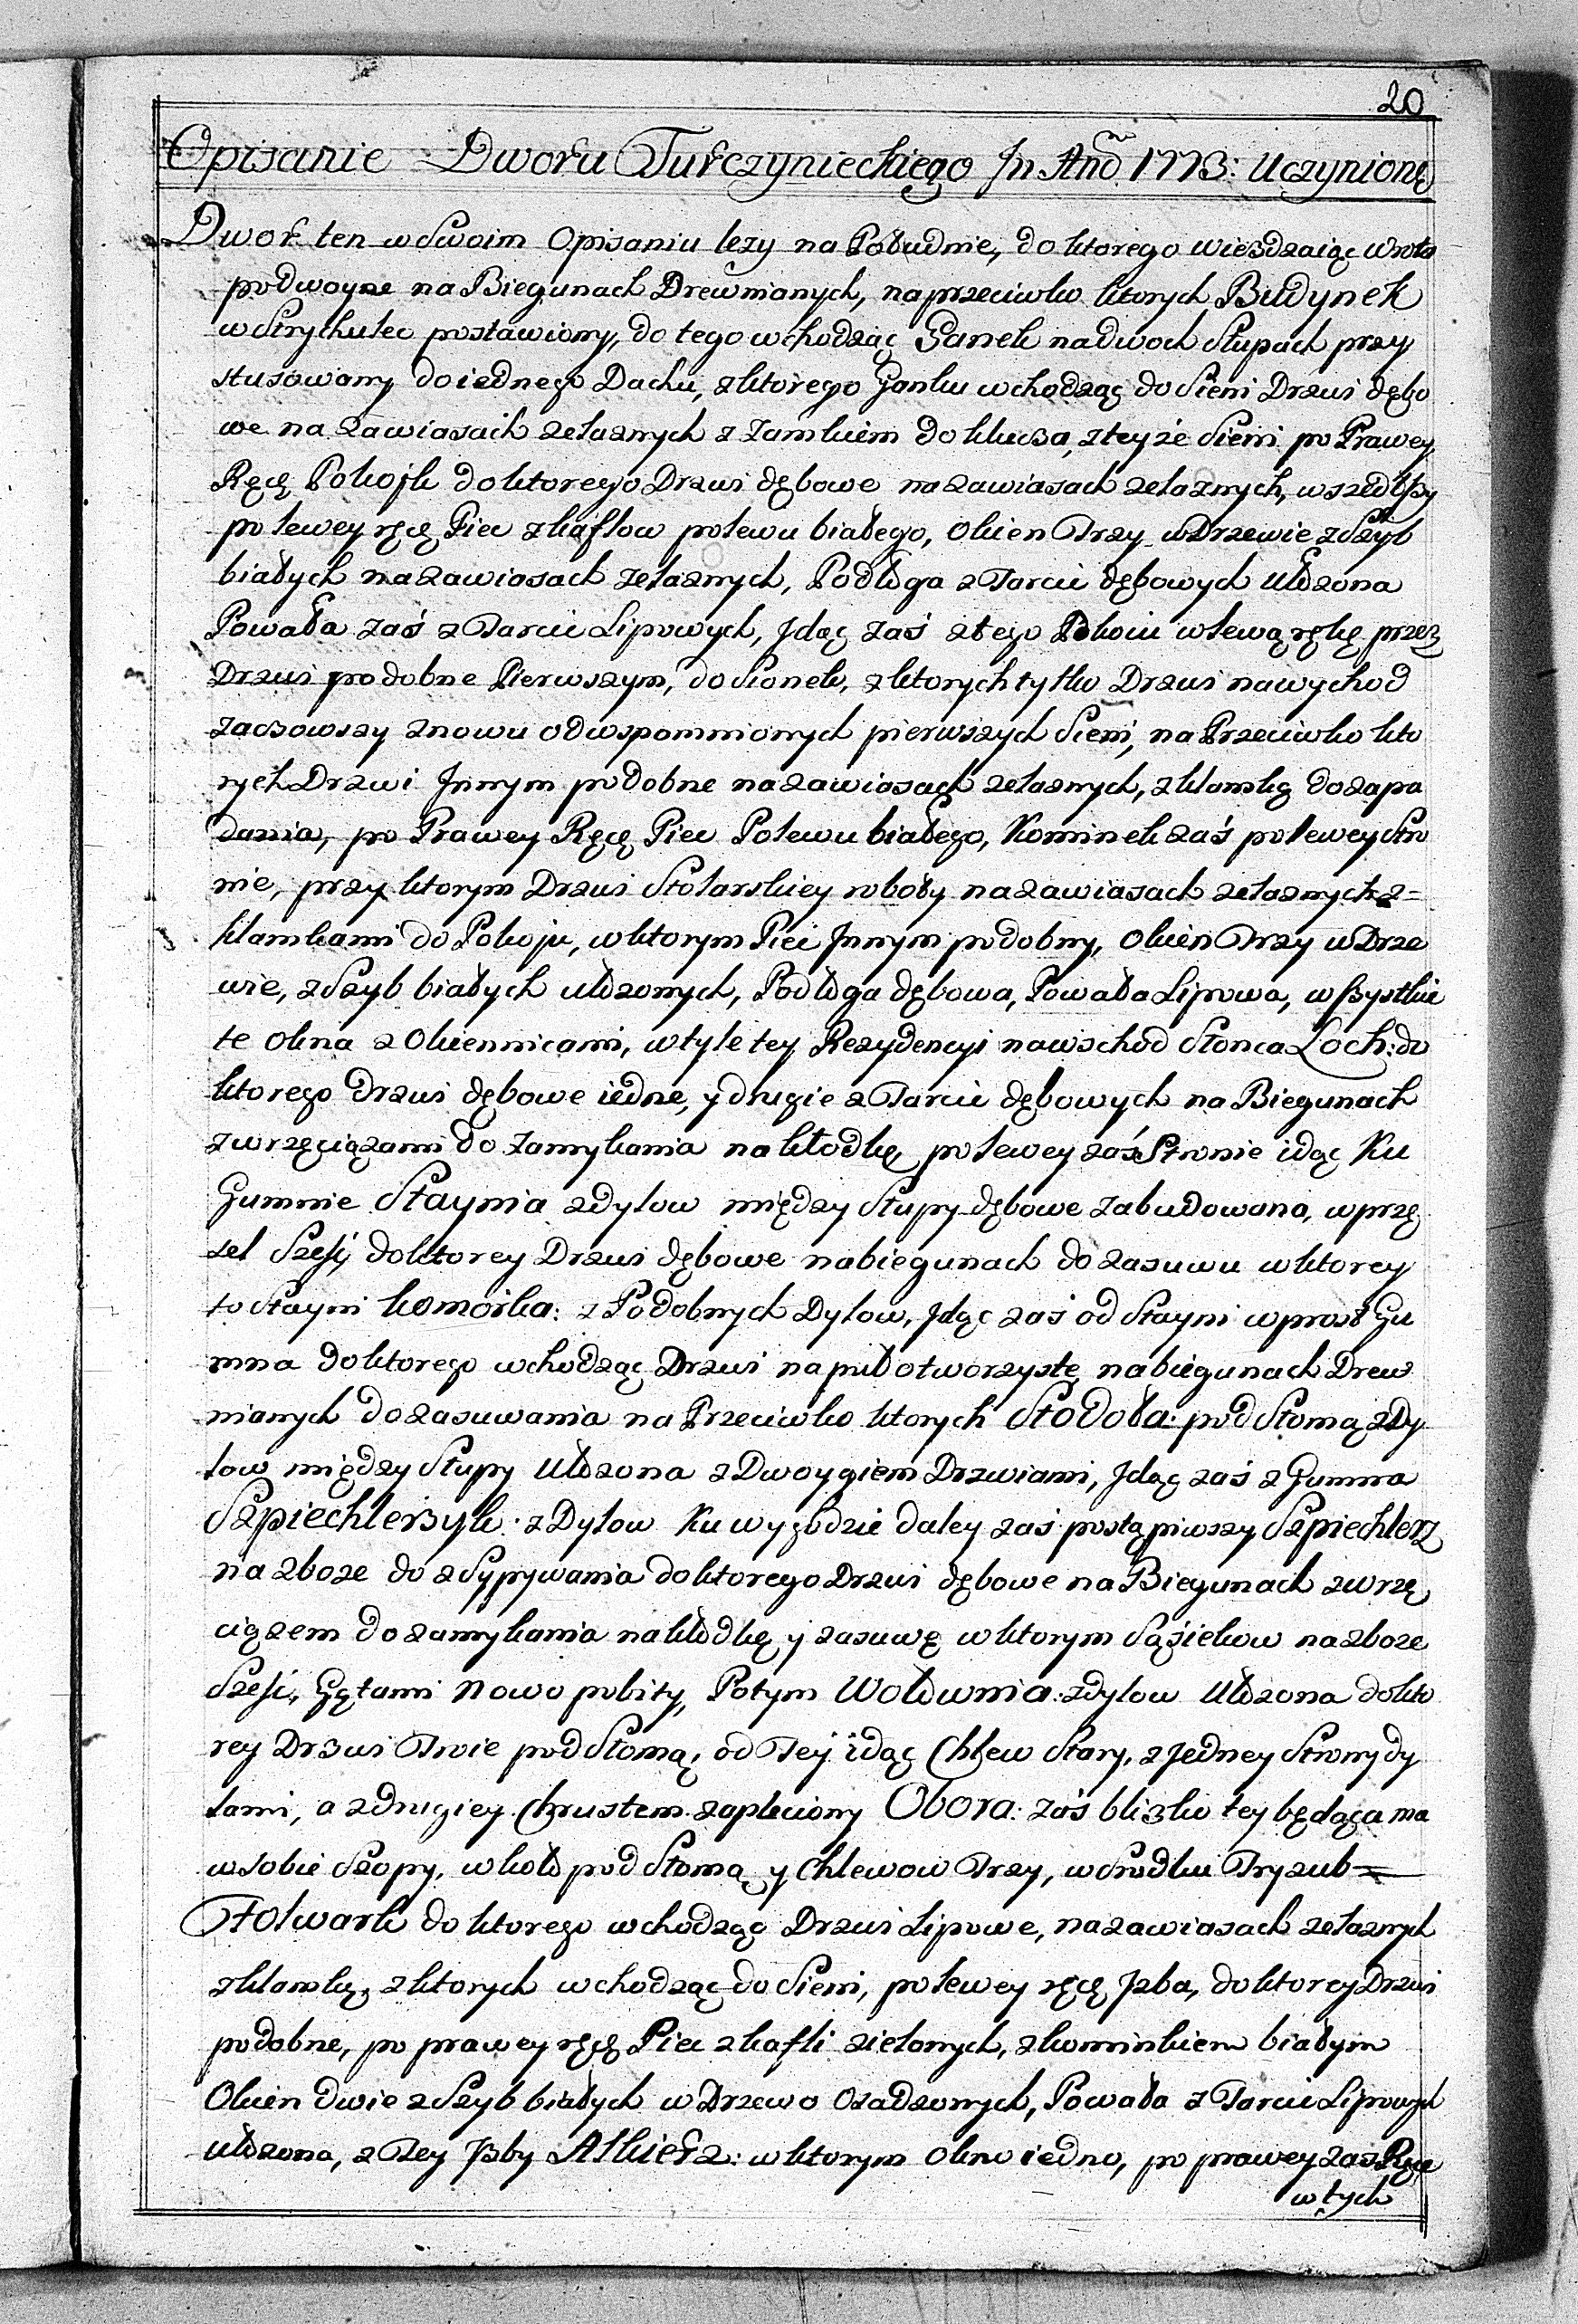 20
Opisanie Dworu Turczynieckiego In Andõ 1773: Uczynione
Dwor ten w Swoim Opisaniu lezy na Południe, do ktorego wiezdzaiąc wrota
podwoyne na Biegunach Drewnianych, naprzeciwko ktorych Budynek
w Strychulec postawiony, do tego wchodząc Ganek na dwoch Słupach przy
stusowany do iednego Dachu, z ktorego Ganku wchodząc do Sieni Drzwi dębo
we na zawiasach zelaznych z zamkiem do klucza, z teyże Sieni po Prawey
Ręcę Pokojk do ktorego Drzwi dębowe na zawiasach zelaznych, wszedłszy
po lewey ręcę Piec z kaflow polewu białego, Okien Trzy w Drzewie z Szyb
białych na zawiasach zelaznych, Podłoga z Tarcic dębowych ułożona
Powała zaś z Tarcic Lipowych, Jdąc zaś z tego Pokoiu w lewą rękę przez
Drzwi podobne Pierwszym, do Sionek, z ktorych tylko Drzwi na wychod
zaczowszy znowu od wspomnionych pierwszych Sieni, na Przeciwko kto
rych Drzwi Jnnym podobne na zawiasach zelaznych, z klamką do zapa
dania, po Prawey Ręcę Piec Polewu białego, Kominek zaś po lewey Stro
nie, przy ktorym Drzwi Stolarskiey roboty na zawiasach zelaznych z=
klamkami do Pokoju, w ktorym Piec Jnnym podobny, Okien Trzy w Drze
wie, z Szyb białych ułozonych, Podłoga dębowa, Powała Lipowa, wszystkie
te okna z Okiennicami, w tyle tey Rezydencyi na wschod Słonca Loch: do
ktorego drzwi dębowe iedne, y drugie z Tarcic dębowych na Biegunach
z wrzęciązami do zamykania na kłodkę po lewey zaś Stronie idąc Ku
Gumnie Staynia z dylow między Słupy dębowe zabudowana, w przę
seł Szesj do ktorey Drzwi dębowe na biegunach do zasuwu w ktorey
to Stayni komorka: z Podobnych Dylow, Jdąc zas od Stayni wprost Gu
mna do ktorego wchodząc Drzwi na puł otworzyste na biegunach Drew
nianych do zasuwania na Przeciwko ktorych Stodoła: pod Słomą z Dy
low między Słupy Ułozona z Dwoygiem Drzwiami, Jdąc zaś z Gumna
Szpiechlerzyk: z Dylow Ku wygodzie daley zaś postąpiwszy Szpiechlerz
na zboze do zSypywania do ktorego Drzwi dębowe na Biegunach z wrzę
ciązem do zamykania na kłodkę y zasuwę w ktorym Sąsiekow na zboze
Szesć, Gątami Nowo pobity, Potym Wołownia: z dylow Ułozona do kto
rey Drzwi Troie pod Słomą, od Tey idąc Chlew Stary, z Jedney Strony dy
lami, a z drugiey Chrustem zapleciony Obora: zaś blizko tey będąca ma
w sobie Szopy, w koło pod Słomą y Chlewow Trzy, w Srodku Tryzub=
Folwark do ktorego wchodząc Drzwi Lipowe, na zawiasach zelaznych
z klamką, z ktorych wchodząc do Sieni, po lewey ręcę Jzba, do ktorey Drzwi
podobne, po prawey ręcę Piec z kafli zielonych, z kominkiem białym
Okien dwie z Szyb białych w Drzewo Osadzonych, Powała z Tarcic Lipowych
ułozona, z Tey Jzby Alkierz: w ktorym Okno iedno, po prawey zas Ręce
w tych